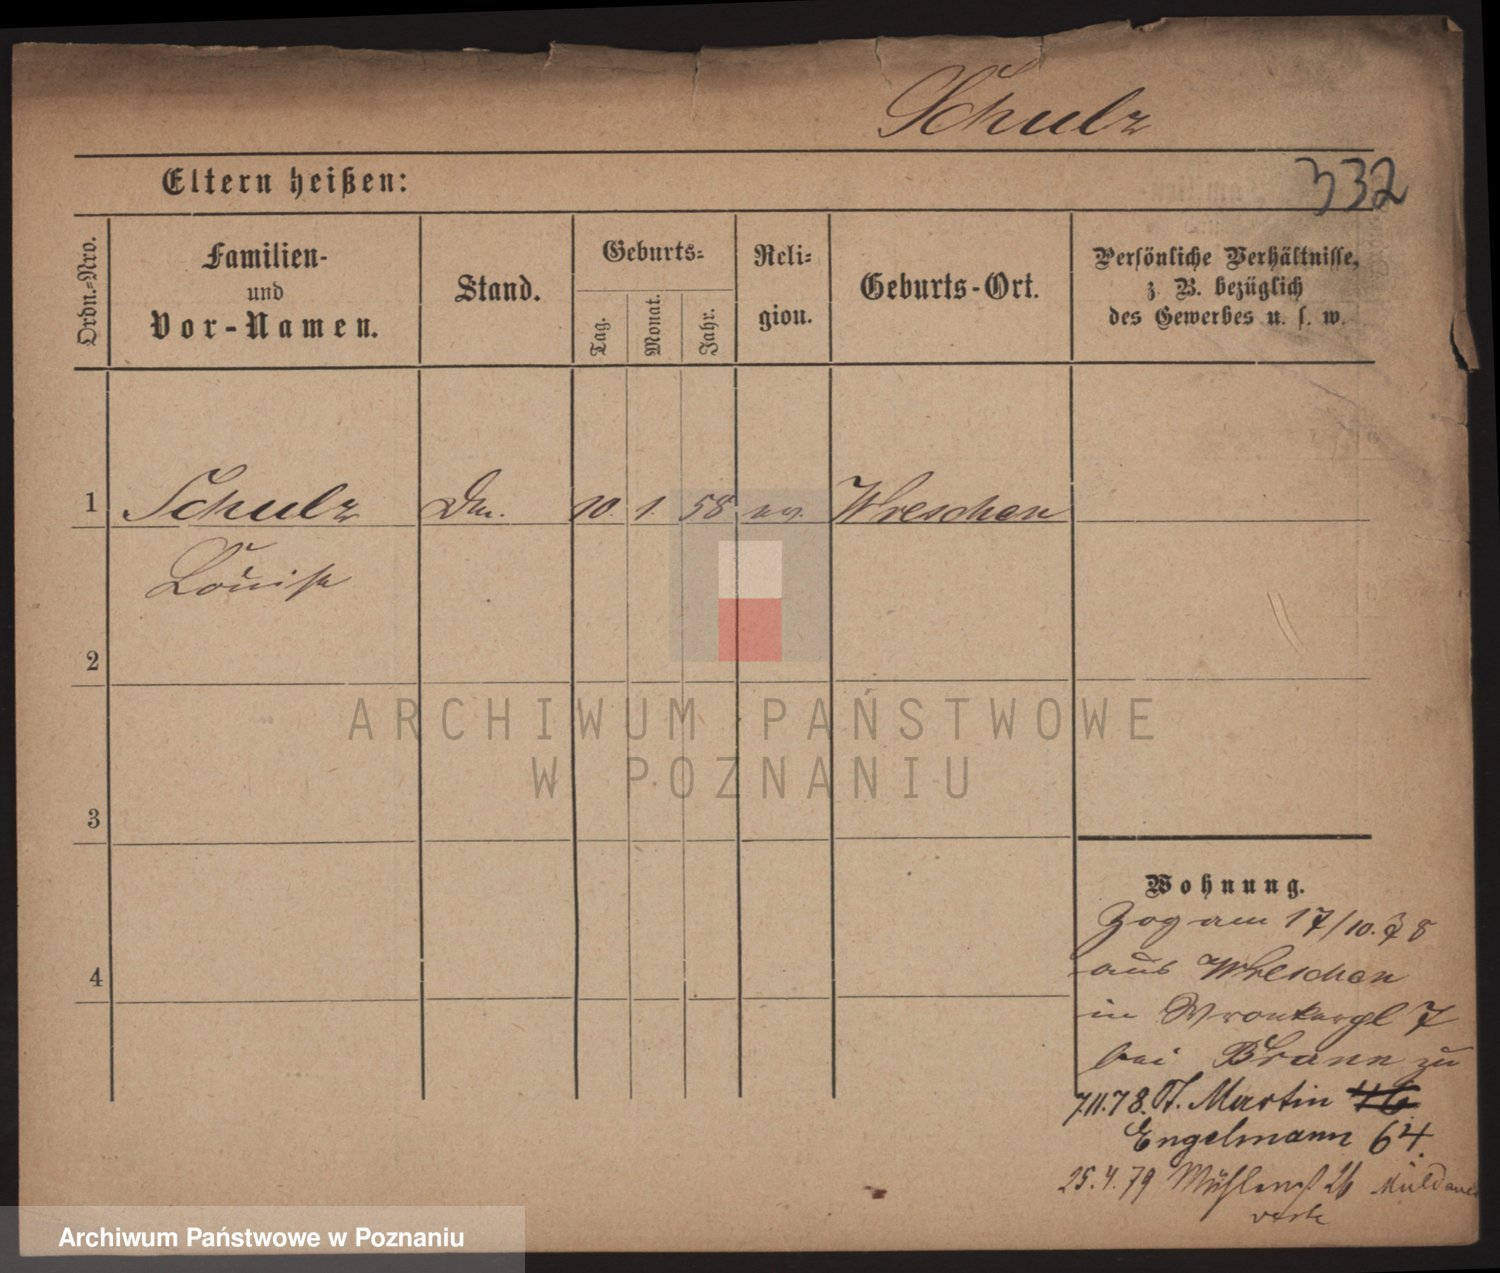 Schulz
332
Eltern heißen:
Ordn.-Nro.
Familien-
und
Vor-Namen.
Stand.
Geburts-
Tag.
Monat.
Jahr.
Reli-
gion.
Geburts-Ort.
Persönliche Verhältnisse,
z. B. bezüglich
des Gewerbes u. s. w.
1 Schulz 10. 1. 58 ev. Wreschen
Louise
2
3
4
Wohnung.
Zog am 17/10.78
aus Wreschen
in 7
bei Brann zu
7.11.78. St. Martin 46
Engelmann 64.
25.4.79 26
ARCHIWUM PAŃSTWOWE
W POZNANIU
Archiwum Państwowe w Poznaniu